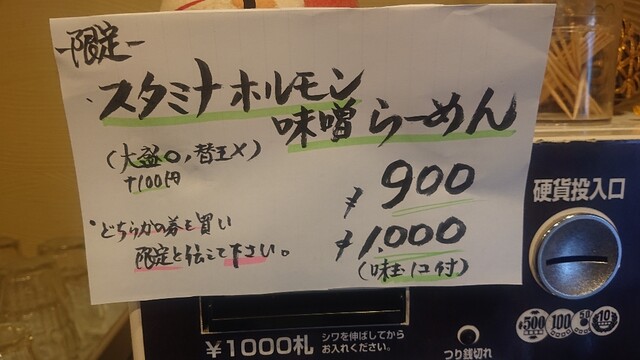 -限定-
スタミナホルモン
味噌らーめん
(大盛○,替玉×)
+100円
¥900
•どちらかの券を買い
限定と伝えて下さい。
¥1,000
(味玉1コ付)
硬貨投入口
¥500 100 50 10
¥1000札
シワを伸ばしてから
お入れください。
つり銭切れ